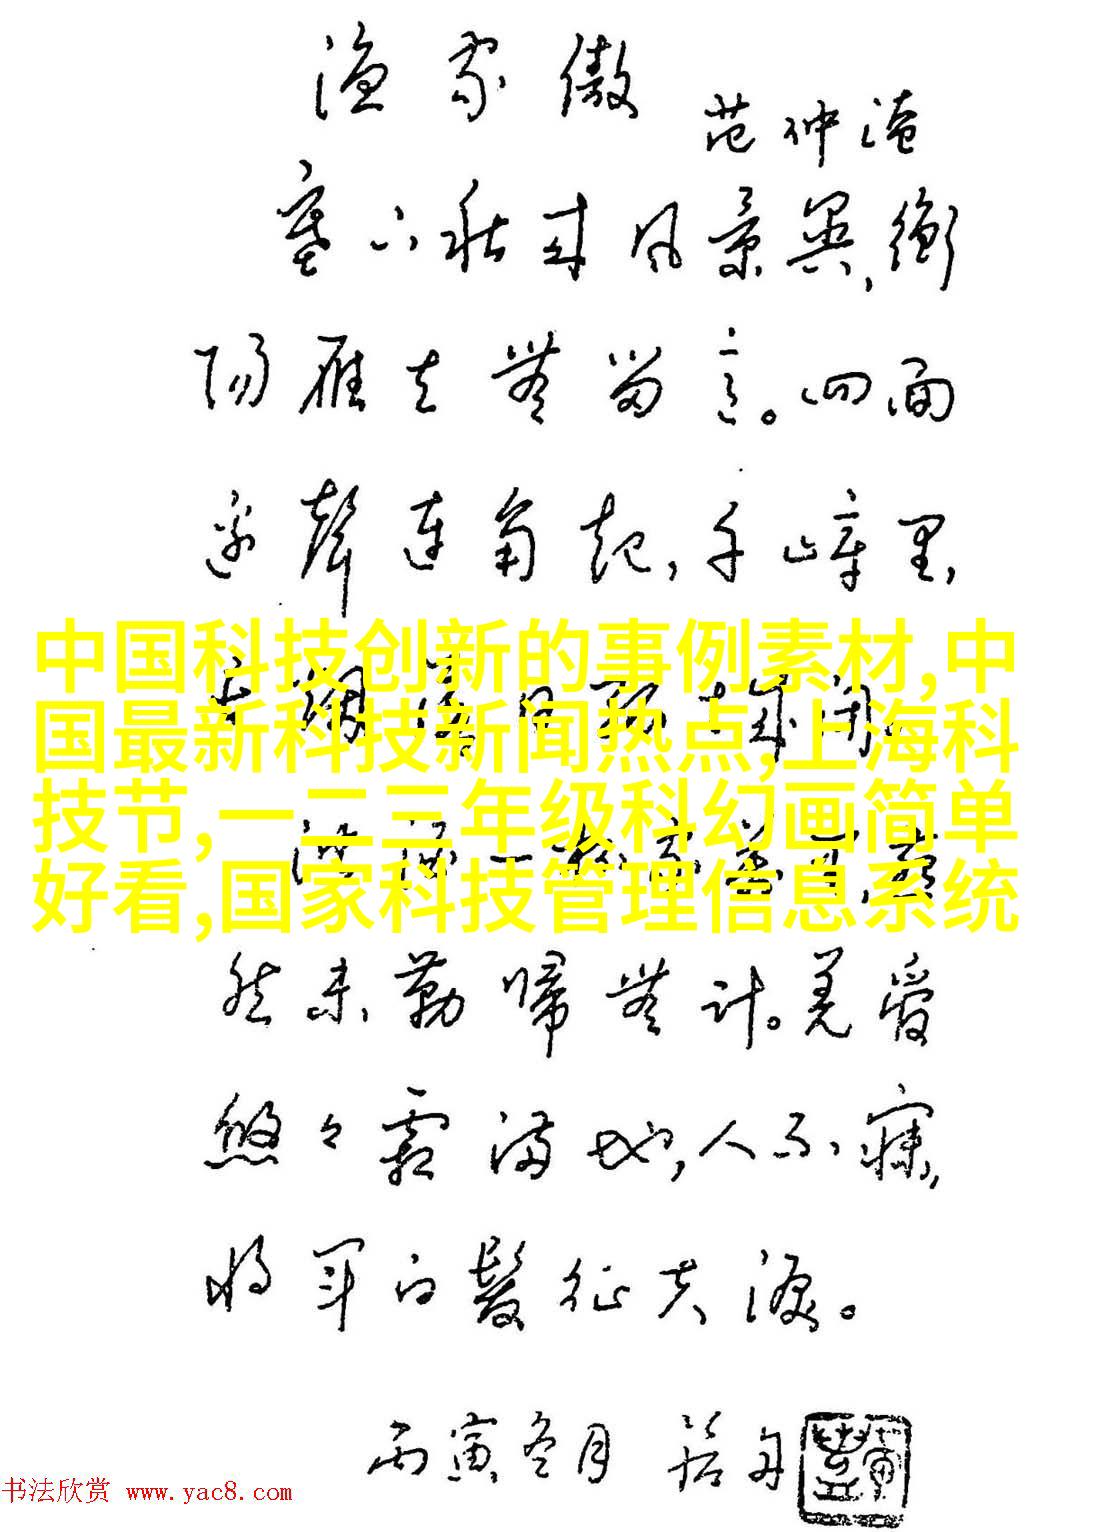 渔家傲
范仲淹
塞下秋来风景异,衡
阳雁去无留意。四面
边声连角起,千嶂里,
中国科技创新的事例素材,中
国最新科技新闻热点,上海科
技节,一二三年级科幻画简单
好看,国家科技管理信息系统
长烟落日孤城闭。
浊酒一杯家万里,燕
然未勒归无计。羌管
悠々霜满地,人不寐,
将军白髮征夫泪。
丙寅冬月
书法欣赏 www.yac8.com